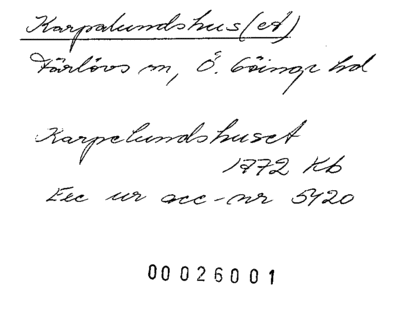 Karpalundshus(et)
Färlövs sn, Ö. Göinge hd
Karpelundshuset
1772 Kb
Exc ur acc-nr 5420
00026001